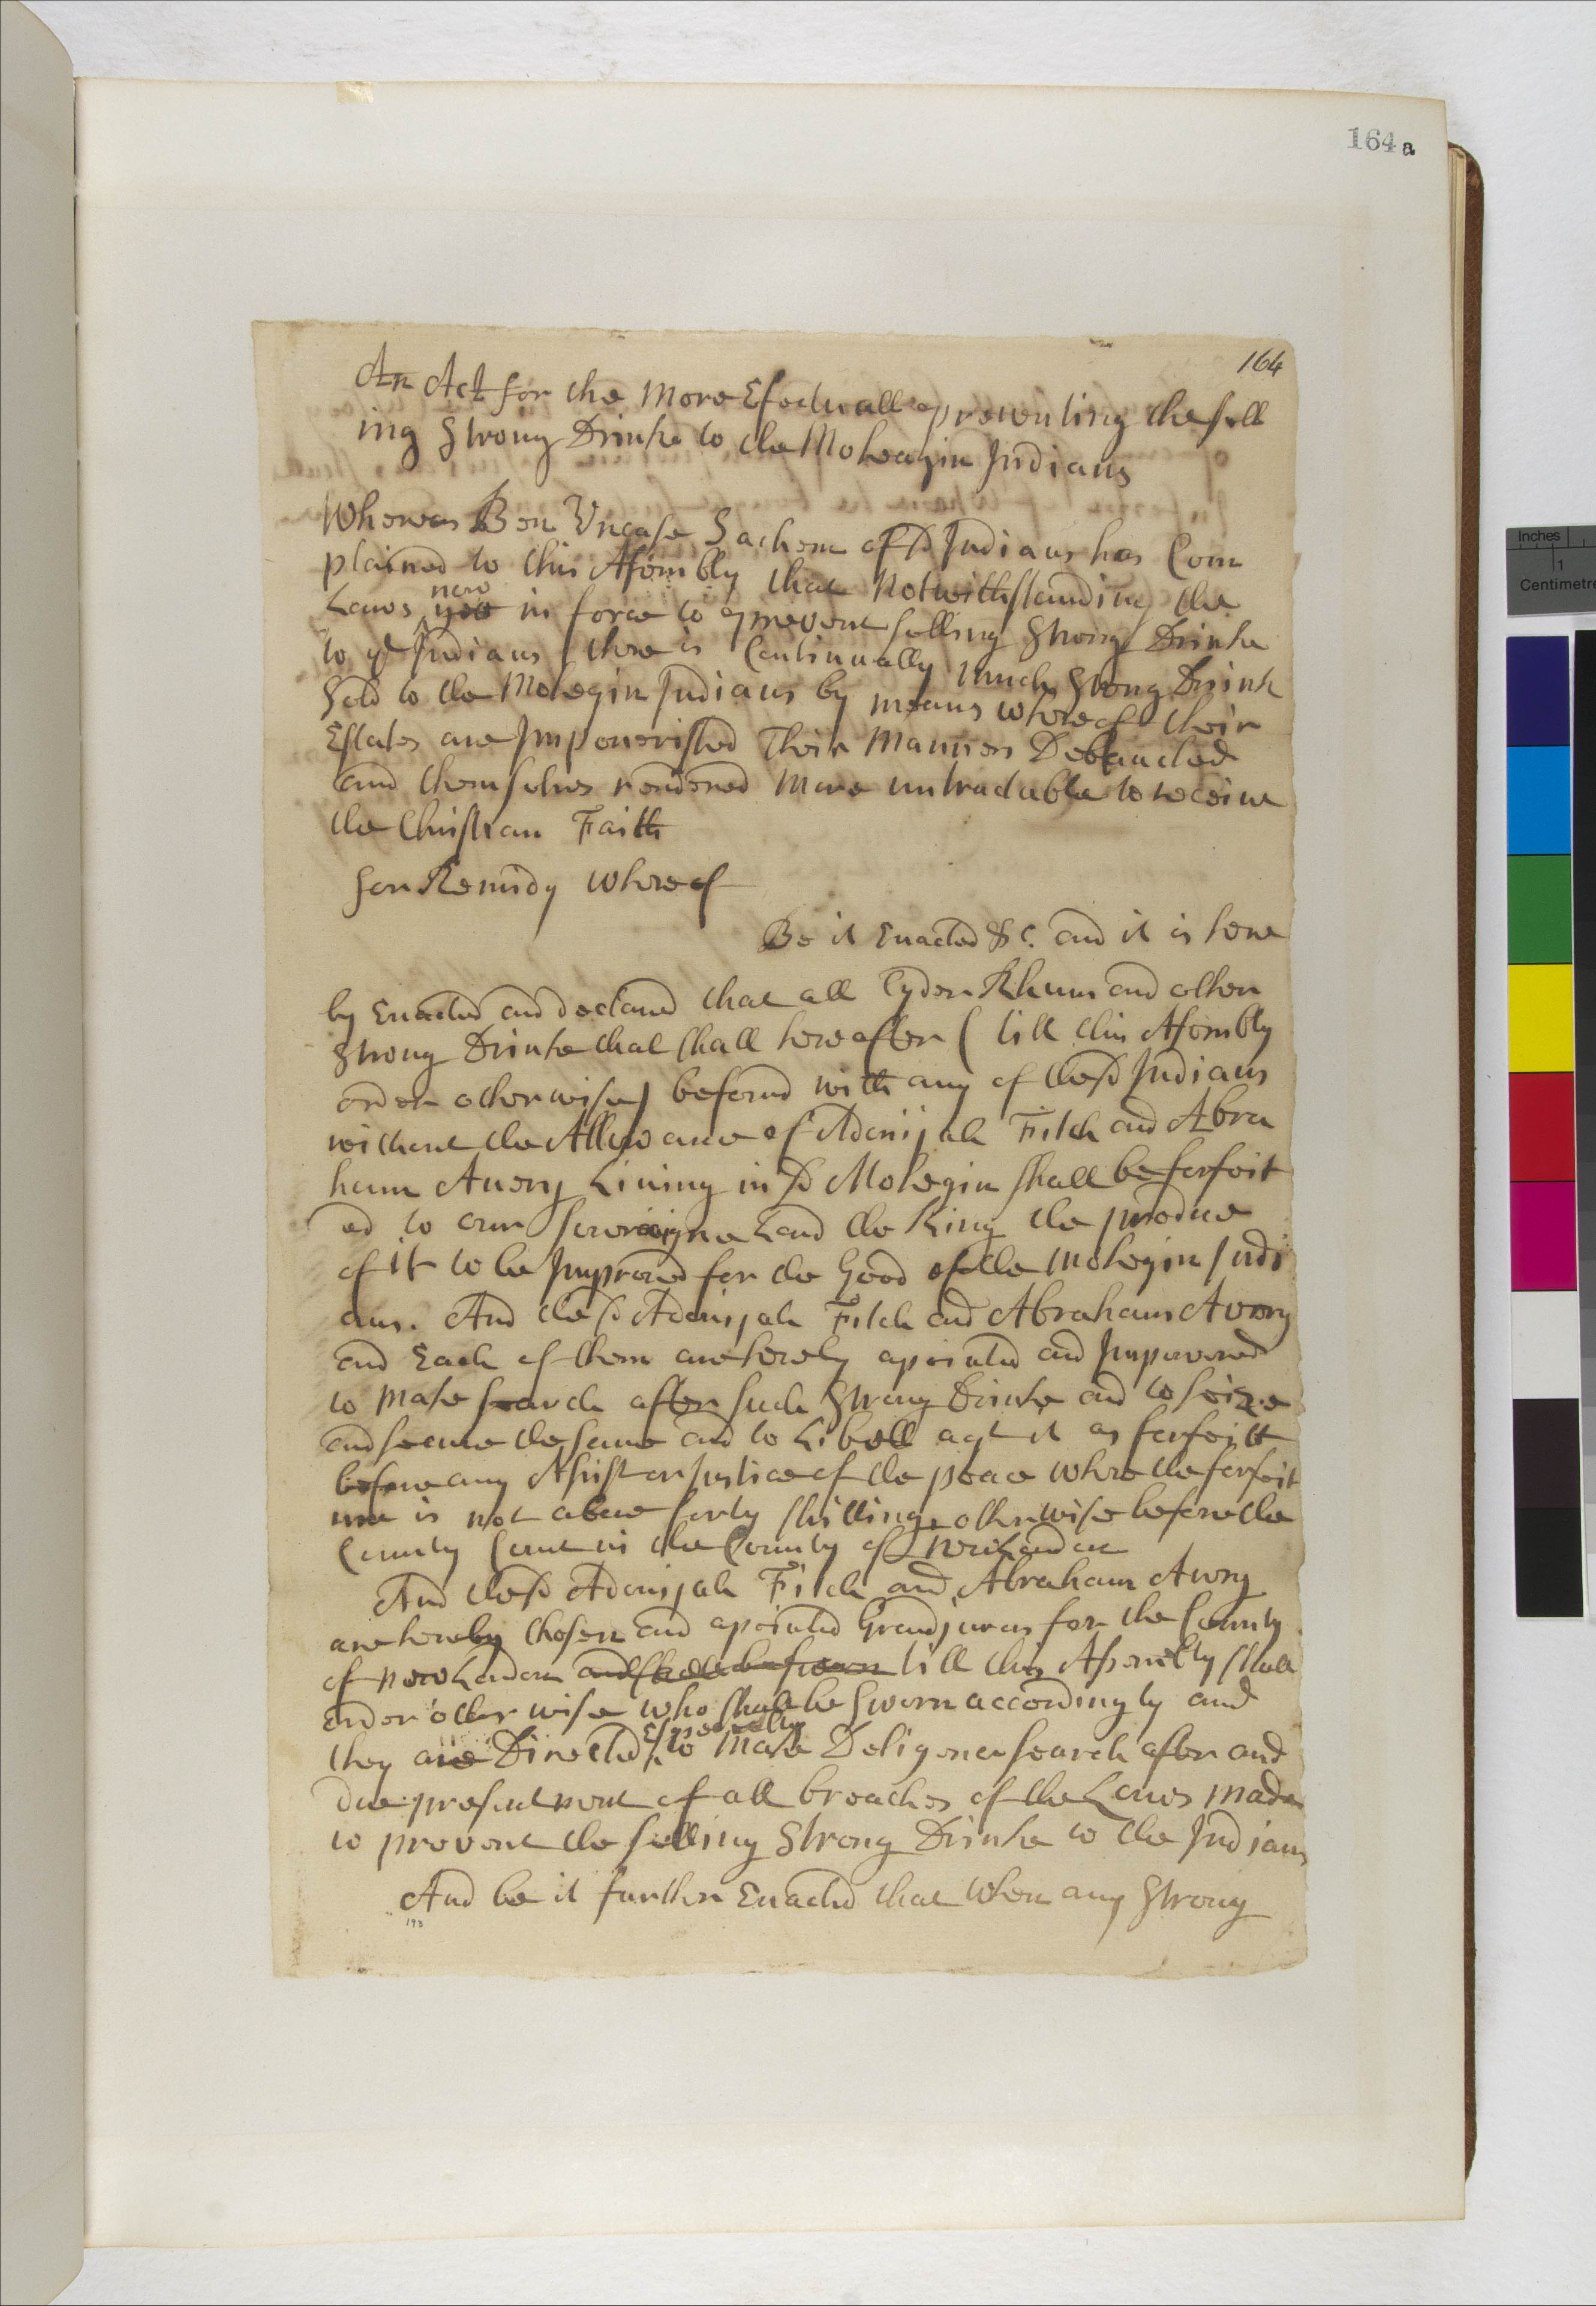 164 a
164
An Act for the More Efectuall preventing the sell
ing Strong Drinke to the Moheagin Indians
Whereas Ben Uncase Sachem of sd Indians has Com
plained to this Assembly that Notwithstanding the
now
Laws yet in force to prevent selling Strong Drinke
to ye Indians there is Continually much Strong Drink
Sold to the Mohegin Indians by means whereof their
Estates are Impoverished Their Manners Debauched
and themselves rendered More untractable to receive
the Christian Faith
for Remidy whereof
Be it Enacted &c. and it is here
by Enacted and declared that all Cyder Rhum and other
Strong Drinke that shall hereafter ( till this Assembly
order otherwise) be found with any of the sd Indians
without the Allowance of Adonijah Fitch and Abra
ham Avery Living in sd Mohegin shall be forfeit
ed to our Soveraigne Lord the King the produce
of it to be Improved for the Good of the Mohegin Indi
ans. And the sd Adonijah Fitch and Abraham Avery
and Each of them are hereby apointed and Impowered
to Make search after such Strong Drinke and to seize
and secure the same and to Libell agt it as forfeitt
before any Assist or Justice of the peace where the forfeit
ure is not above forty shillings otherwise before the
County Court in the County of New London
And the sd Adonijah Fitch and Abraham Avery
are hereby Chosen and apointed Grandjurors for the County
of New London and shall be sworn till this Assembly shall
order otherwise who shall be Sworn accordingly and
Especially
they are Directed to Make Deligence search after and
due presentment of all breaches of the Laws made
to prevent the selling Strong Drinke to the Indians
And be it further Enacted that when any Strong
193
Inches
1
Centimetre